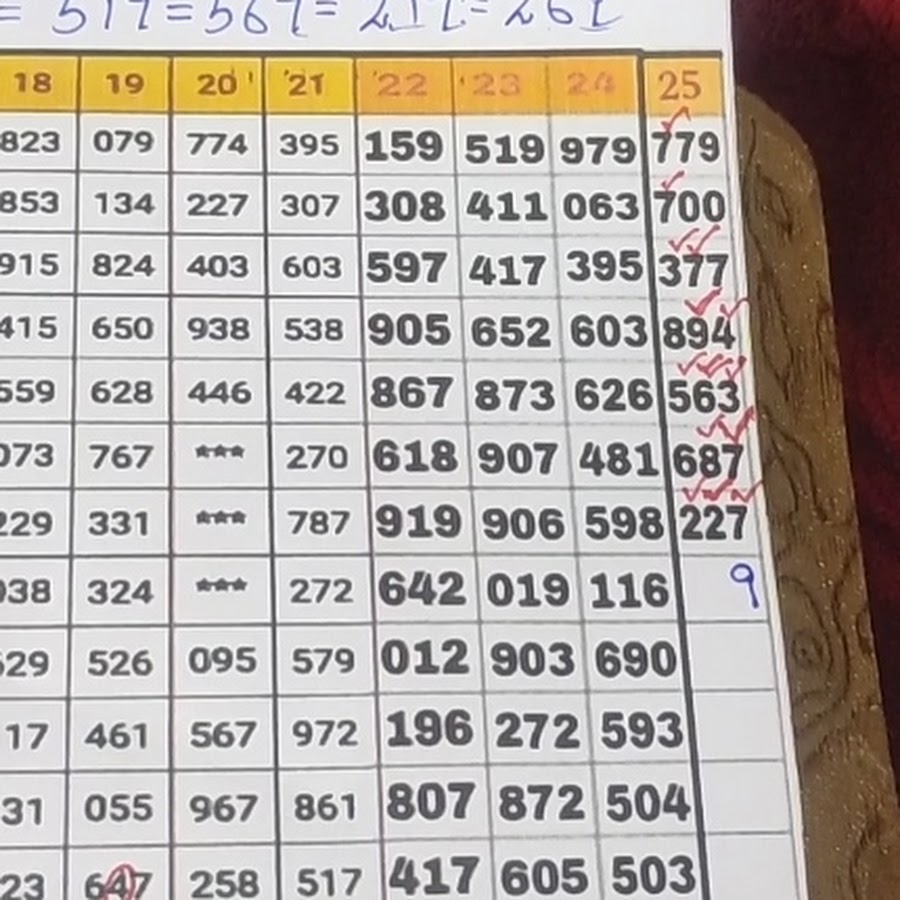 = 517=567= 217=267
18 19 20 21 22 23 24 25
823 079 774 395 159 519 979 779
853 134 227 307 308 411 063 700
915 824 403 603 597 417 395 377
415 650 938 538 905 652 603 894
559 628 446 422 867 873 626 563
073 767 *** 270 618 907 481 687
229 331 *** 787 919 906 598 227
038 324 *** 272 642 019 116 9
529 526 095 579 012 903 690
17 461 567 972 196 272 593
31 055 967 861 807 872 504
23 647 258 517 417 605 503